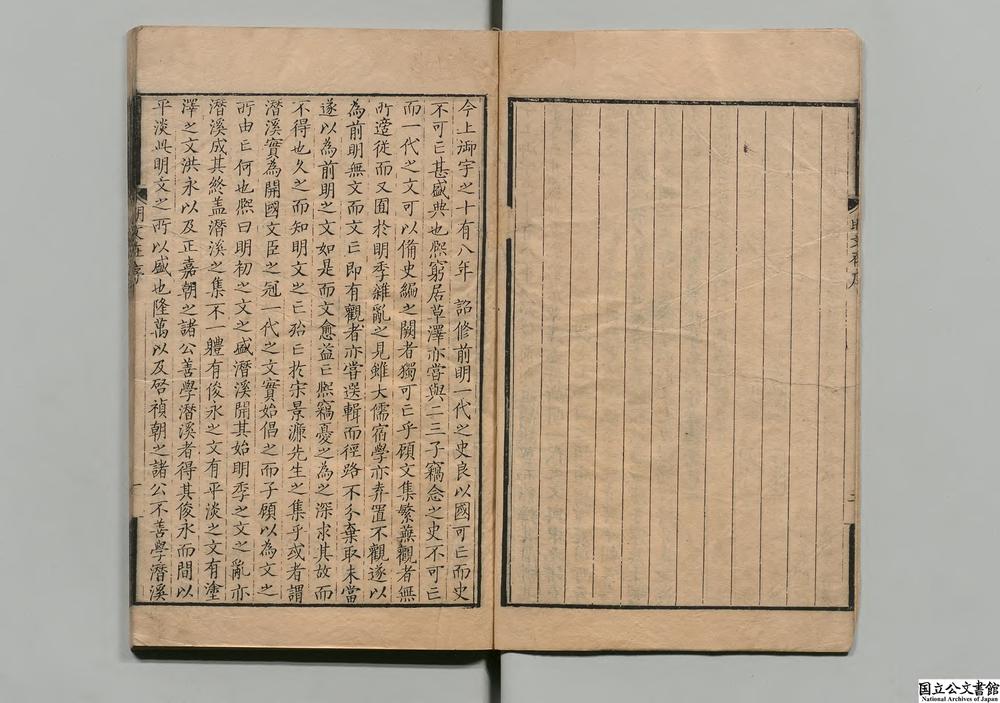 今上御宇之十有八年 詔修前明一代之史良以國可亡而史
不可亡甚盛典也熙窮居草澤亦嘗與二三子竊念之史不可亡
而一代之文可以備史編之闕者獨可亡乎顧文集繁蕪觀者無
所適從而又囿於明季雜亂之見雖大儒宿學亦弃置不觀遂以
為前明無文而文亡即有觀者亦嘗選輯而徑路不分棄取未當
遂以為前明之文如是而文愈益亡熙竊憂之為之深求其故而
不得也久之而知明文之亡殆亡於宋景濂先生之集乎或者謂
潛溪實為開國文臣之冠一代之文實始倡之而子顧以為文之
所由亡何也熙曰明初之文之盛潛溪開其始明季之文之亂亦
潛溪成其終盖潛溪之集不一體有俊永之文有平淡之文有塗
澤之文洪永以及正嘉朝之諸公善學潛溪者得其俊永而間以
平淡此明文之所以盛也隆萬以及啓禎朝之諸公不善學潛溪
国立公文書館
National Archives of Japan